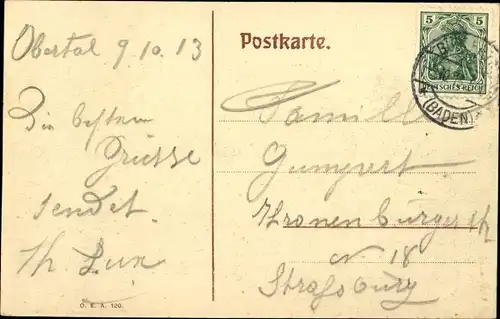 Obertal 9 10 13
Die besten
Grüsse
sendet
Th Lux
O. E. A. 120.
Postkarte.
5 5
DEUTSCHES REICH
(BADEN)
Familie
Gumpert
Kronenburgerstr
N 18
Strassburg